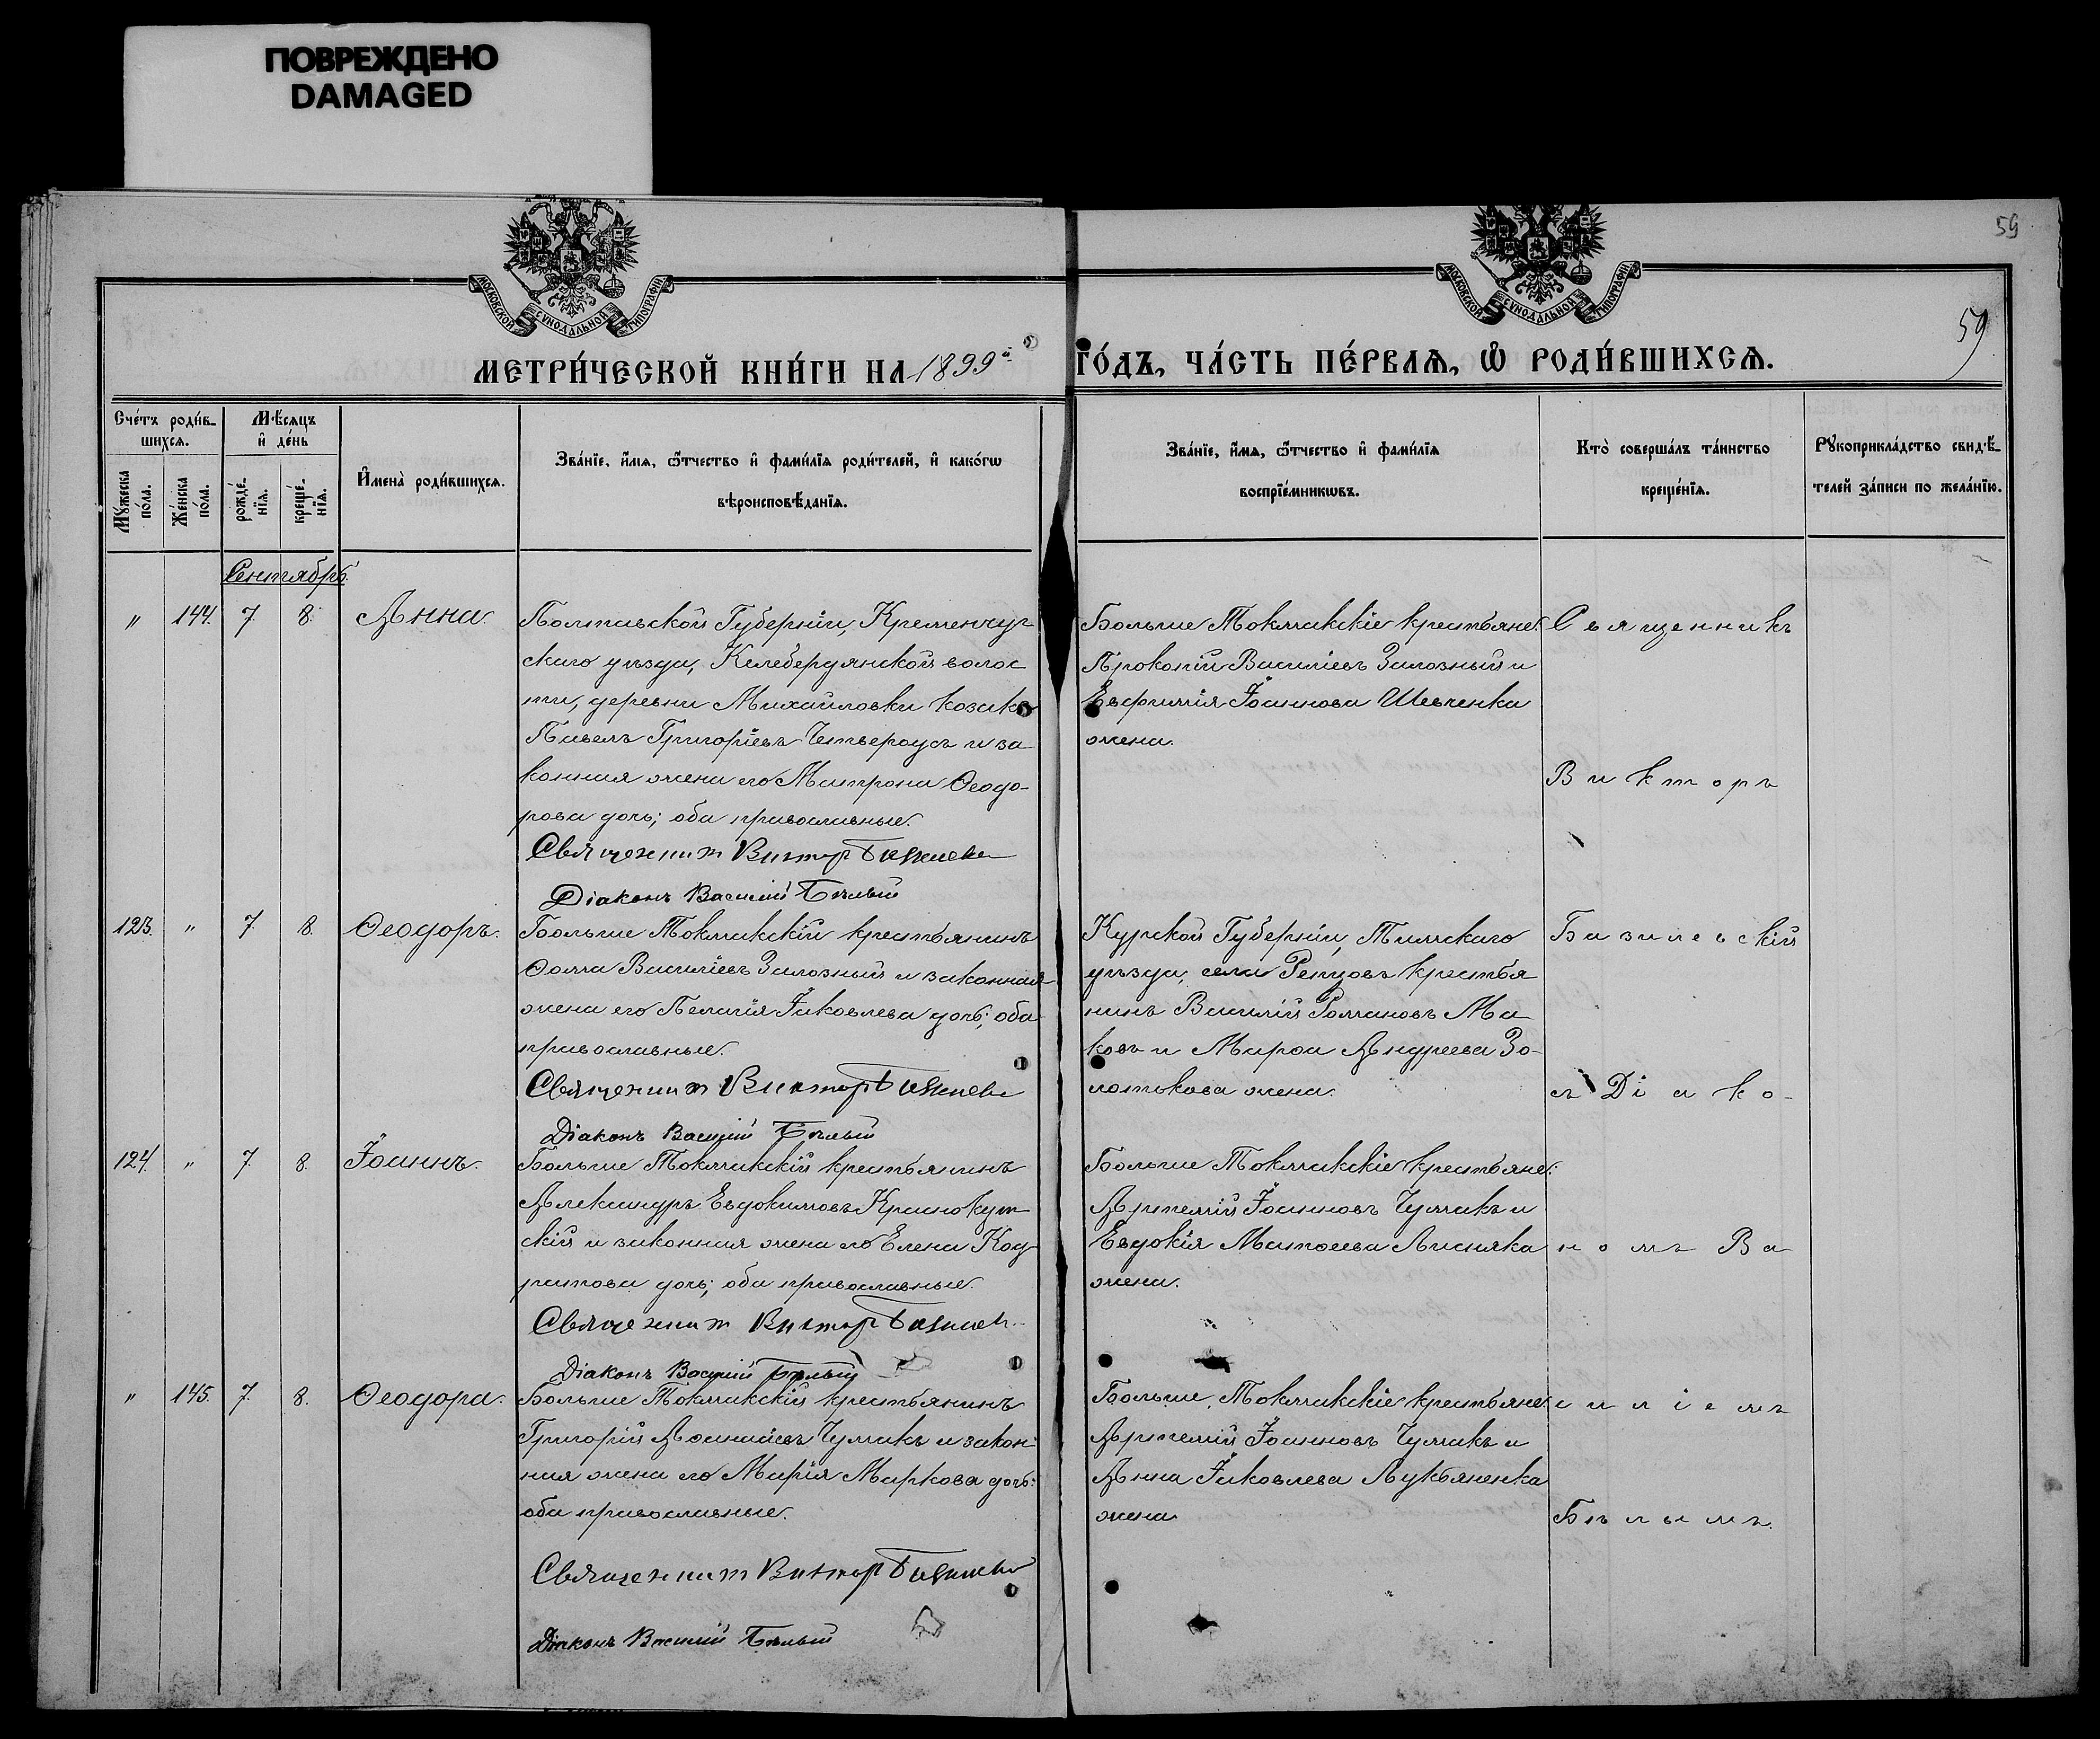 ПОВРЕЖДЕНО
DAMAGED
59
59
МОСКОВСКОЙ СУНОДАЛЬНОЙ ТИПОГРАФІИ
МОСКОВСКОЙ СУНОДАЛЬНОЙ ТИПОГРАФІИ
МЕТРИ́ЧЕСКОЙ КНИ́ГИ НА 1899й
ГО́ДЪ, ЧА́СТЬ ПЕ́РВАѦ, Ѡ҆ РОДИ́ВШИХСѦ.
Сче́тъ роди́в-
шихсѧ.
Мꙋ́жеска по́ла.
Же́нска по́ла.
Мѣ́сѧцъ
и҆ де́нь
рожде́-
нїѧ.
креще́-
нїѧ.
И҆мена̀ роди́вшихсѧ.
Зва́нїе, и҆́мѧ, ѻ҆́тчество и҆ фами́лїѧ роди́телей, и҆ како́гѡ
вѣроисповѣ́данїѧ.
Зва́нїе, и҆́мѧ, ѻ҆́тчество и҆ фами́лїѧ
воспрїе́мникѡвъ.
Кто̀ соверша́лъ та́инство
креще́нїѧ.
Рꙋкоприкла́дство свидѣ́-
телей за́писи по жела́нїю.
Сентябрь.
" 144. 7. 8. Анна.
Полтавской Губерніи, Кременчуг
скаго уѣзда, Келебердянской волос
ти, деревни Михайловки козакъ
Павелъ Григоріевъ Четвероусъ и за
конная жена его Матрона Ѳеодо-
рова дочь; оба православные.
Священник Виктор Базилевск
Діаконъ Василій Бѣлый
Больше Токмакскіе крестьяне:
Прокопій Василіевъ Залозный и
Евфимія Іоаннова Шевченка
жена.
Священникъ
Викторъ
123. " 7. 8. Ѳеодоръ.
Больше Токмакскій крестьянинъ
Ѳома Василіевъ Залозный и законная
жена его Пелагія Іаковлева дочь; оба
православные.
Священник Виктор Базилевск
Діаконъ Василій Бѣлый
Курской Губерніи, Тимскаго
уѣзда, села Репцовъ крестья
нинъ Василій Романовъ Ма
ковъ и Марѳа Андреева Зо-
лотькова жена.
Базилевскій
съ Діако-
124. " 7. 8. Іоаннъ.
Больше Токмакскій крестьянинъ
Александръ Евдокимовъ Краснокут
скій и законная жена его Елена Код
ратова дочь; оба православные.
Священник Виктор Базилевск
Діаконъ Василій Бѣлый
Больше Токмакскіе крестьяне:
Артемій Іоанновъ Чумакъ и
Евдокія Матѳеева Лисняка
жена.
номъ Ва
" 145. 7. 8. Ѳеодора.
Больше Токмакскій крестьянинъ
Григорій Аѳанасіевъ Чумакъ и закон
ная жена его Марія Маркова дочь:
оба православные.
Священник Виктор Базилевск
Діаконъ Василій Бѣлый
Больше Токмакскіе крестьяне:
Артемій Іоанновъ Чумакъ и
Анна Іаковлева Лукьяненка
жена
силіемъ
Бѣлымъ.